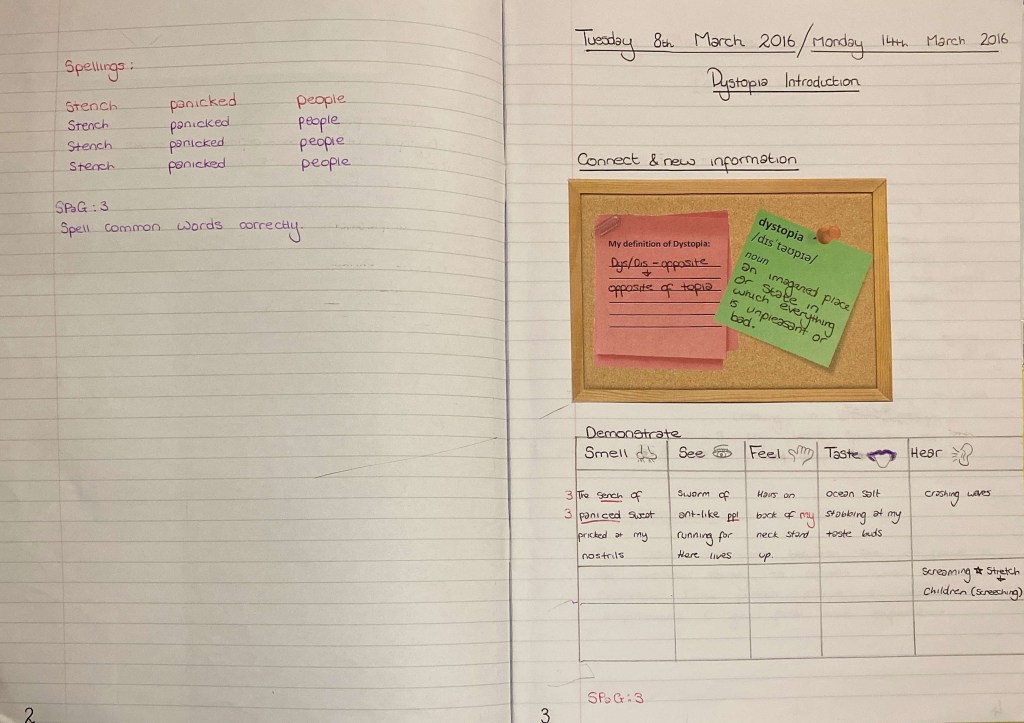 Spellings:
Stench panicked people
Stench panicked people
Stench panicked people
Stench panicked people
SPaG:3
Spell common words correctly.
2
Tuesday 8th March 2016/Monday 14th March 2016
Dystopia Introduction
Connect & new information
My definition of Dystopia:
Dys/Dis - opposite
opposite of topia
dystopia
/dɪsˈtəʊpɪə/
noun
an imagened place
or state in
which everything
is unpleasant or
bad.
Demonstrate
Smell See Feel Taste Hear
3 The sench of
3 paniced sweat
pricked at my
nostrils
Swarm of
ant-like ppl
running for
there lives
Hairs on
back of my
neck stand
up.
ocean salt
stabbing at my
taste buds
crashing waves
Screaming * Stretch
Children (Screeching)
SPaG:3
3